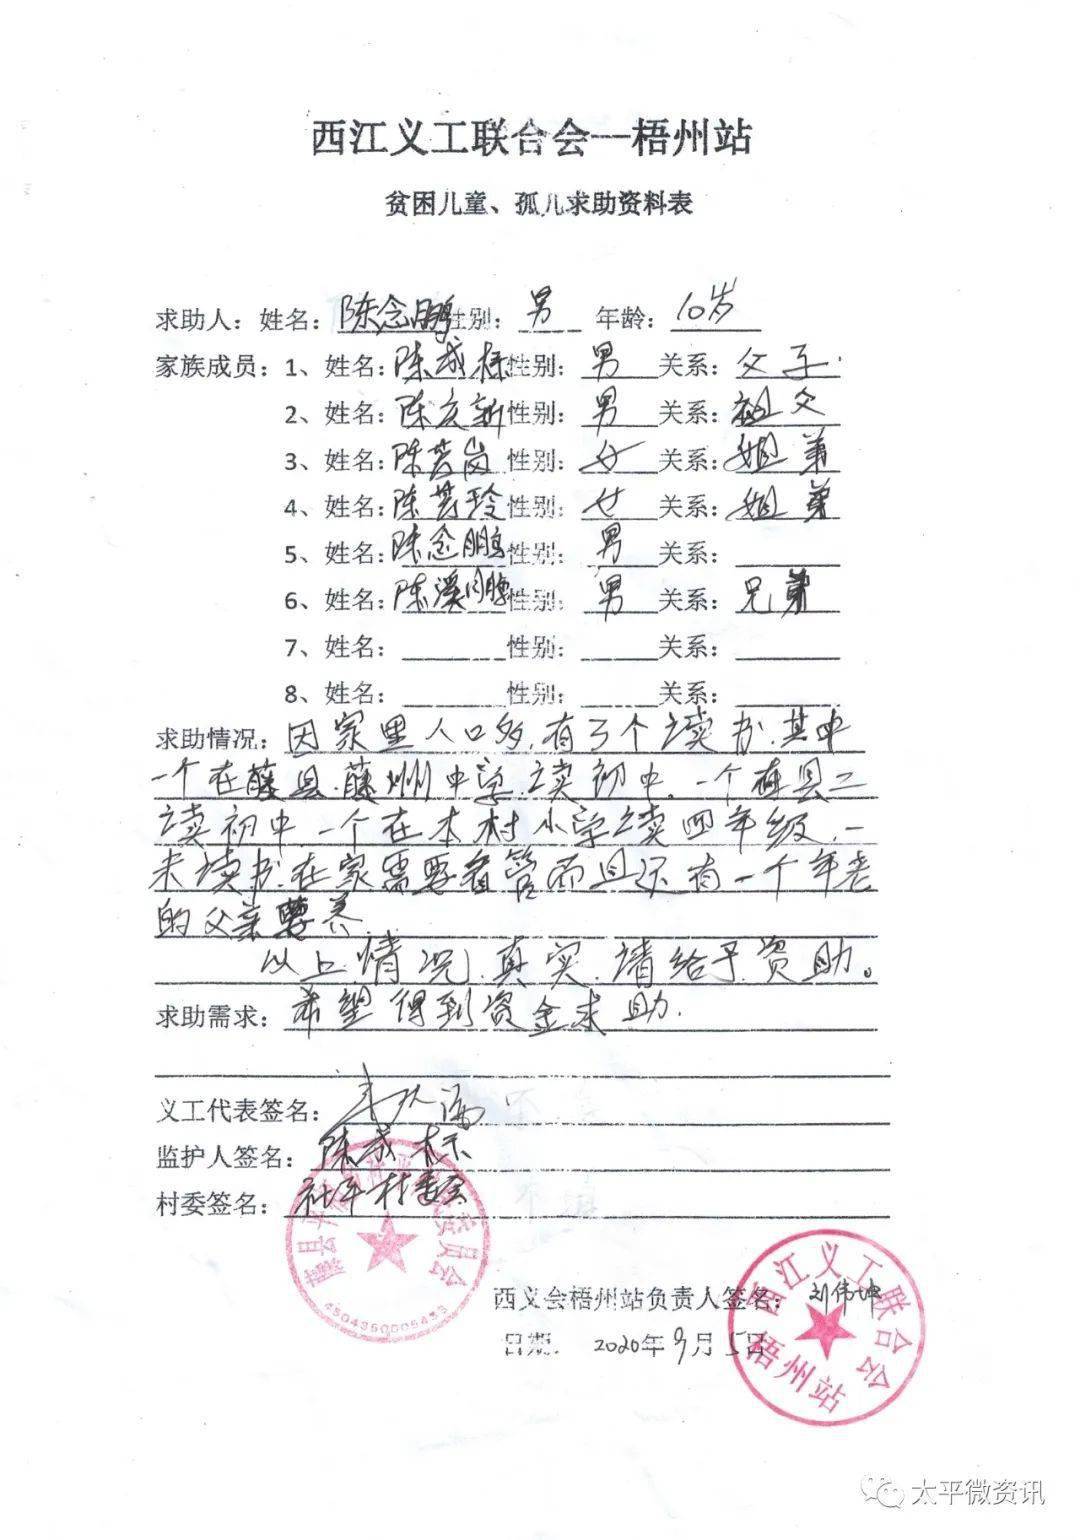 西江义工联合会—梧州站
贫困儿童、孤儿求助资料表
求助人：姓名：陈念鹏 性别：男 年龄：10岁
家族成员：1、姓名：陈成标 性别：男 关系：父子
2、姓名：陈庆新 性别：男 关系：祖父
3、姓名：陈芳岗 性别：女 关系：姐弟
4、姓名：陈芳玲 性别：女 关系：姐弟
5、姓名：陈念鹏 性别：男 关系：
6、姓名：陈溪鹏 性别：男 关系：兄弟
7、姓名： 性别： 关系：
8、姓名： 性别： 关系：
求助情况：因家里人口多,有3个读书.其中
一个在藤县.藤州中学读初中.一个在县二
读初中.一个在本村小学读四年级.一
未读书.在家需要看管而且还有一个年老
的父亲要养.
以上情况.真实.请给予资助。
求助需求：希望得到资金求助.
义工代表签名：
监护人签名：陈成标
村委签名：社平村委会
藤县 村 委员会
西义会梧州站负责人签名：刘伟坤
日期： 2020年9月5日
西江义工联合会
梧州站
太平微资讯